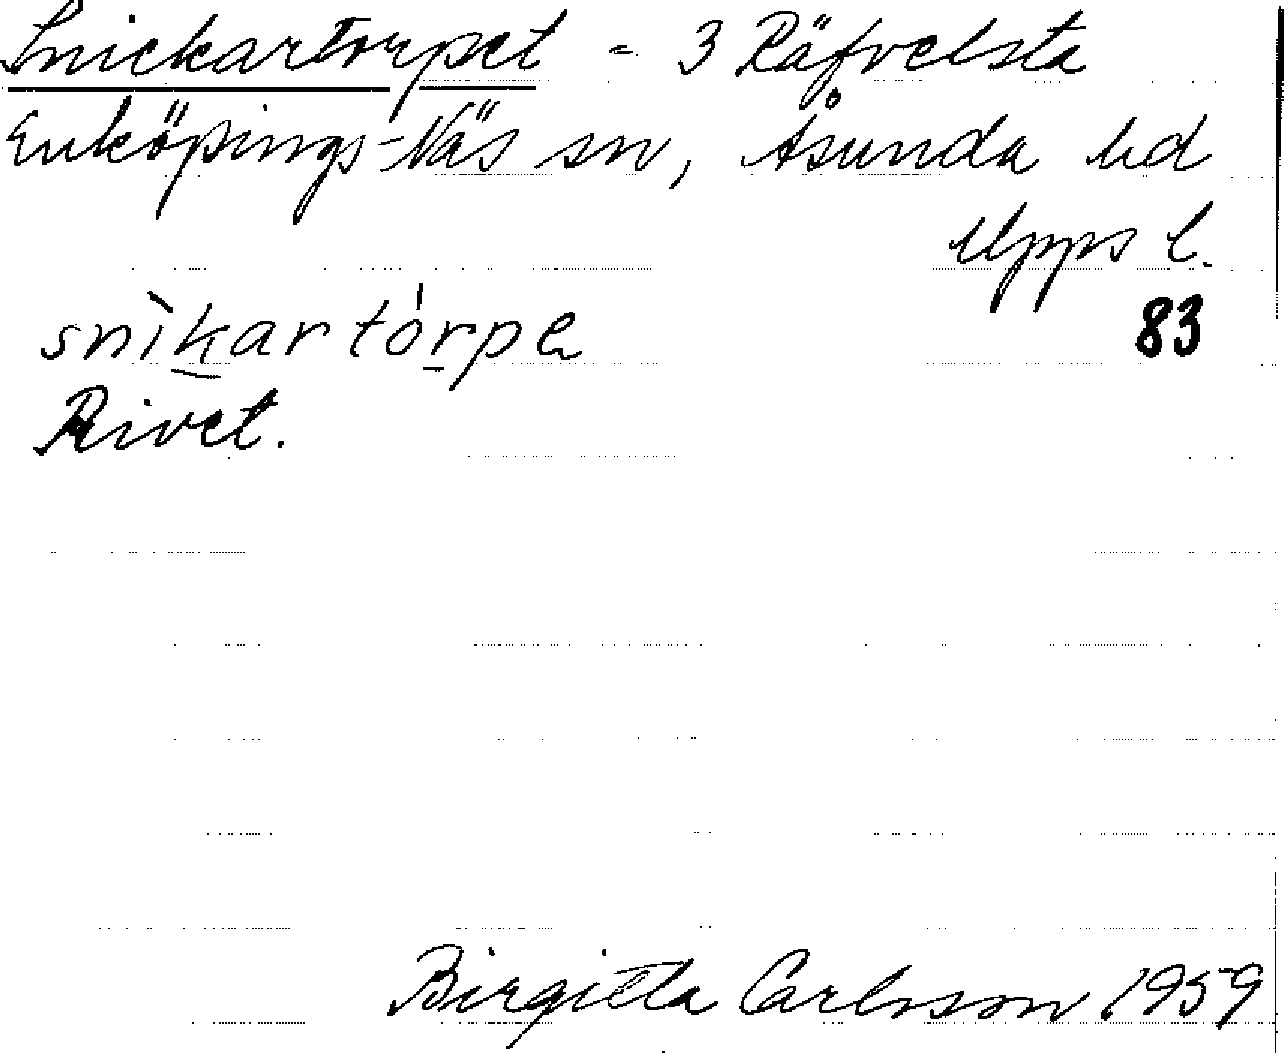 Snickartorpet - 3 Räfvelsta
Enköpings-Näs sn, Åsunda hd
Upps l.
snìkartórpe 83
Rivet.
Birgitta Carlsson 1959